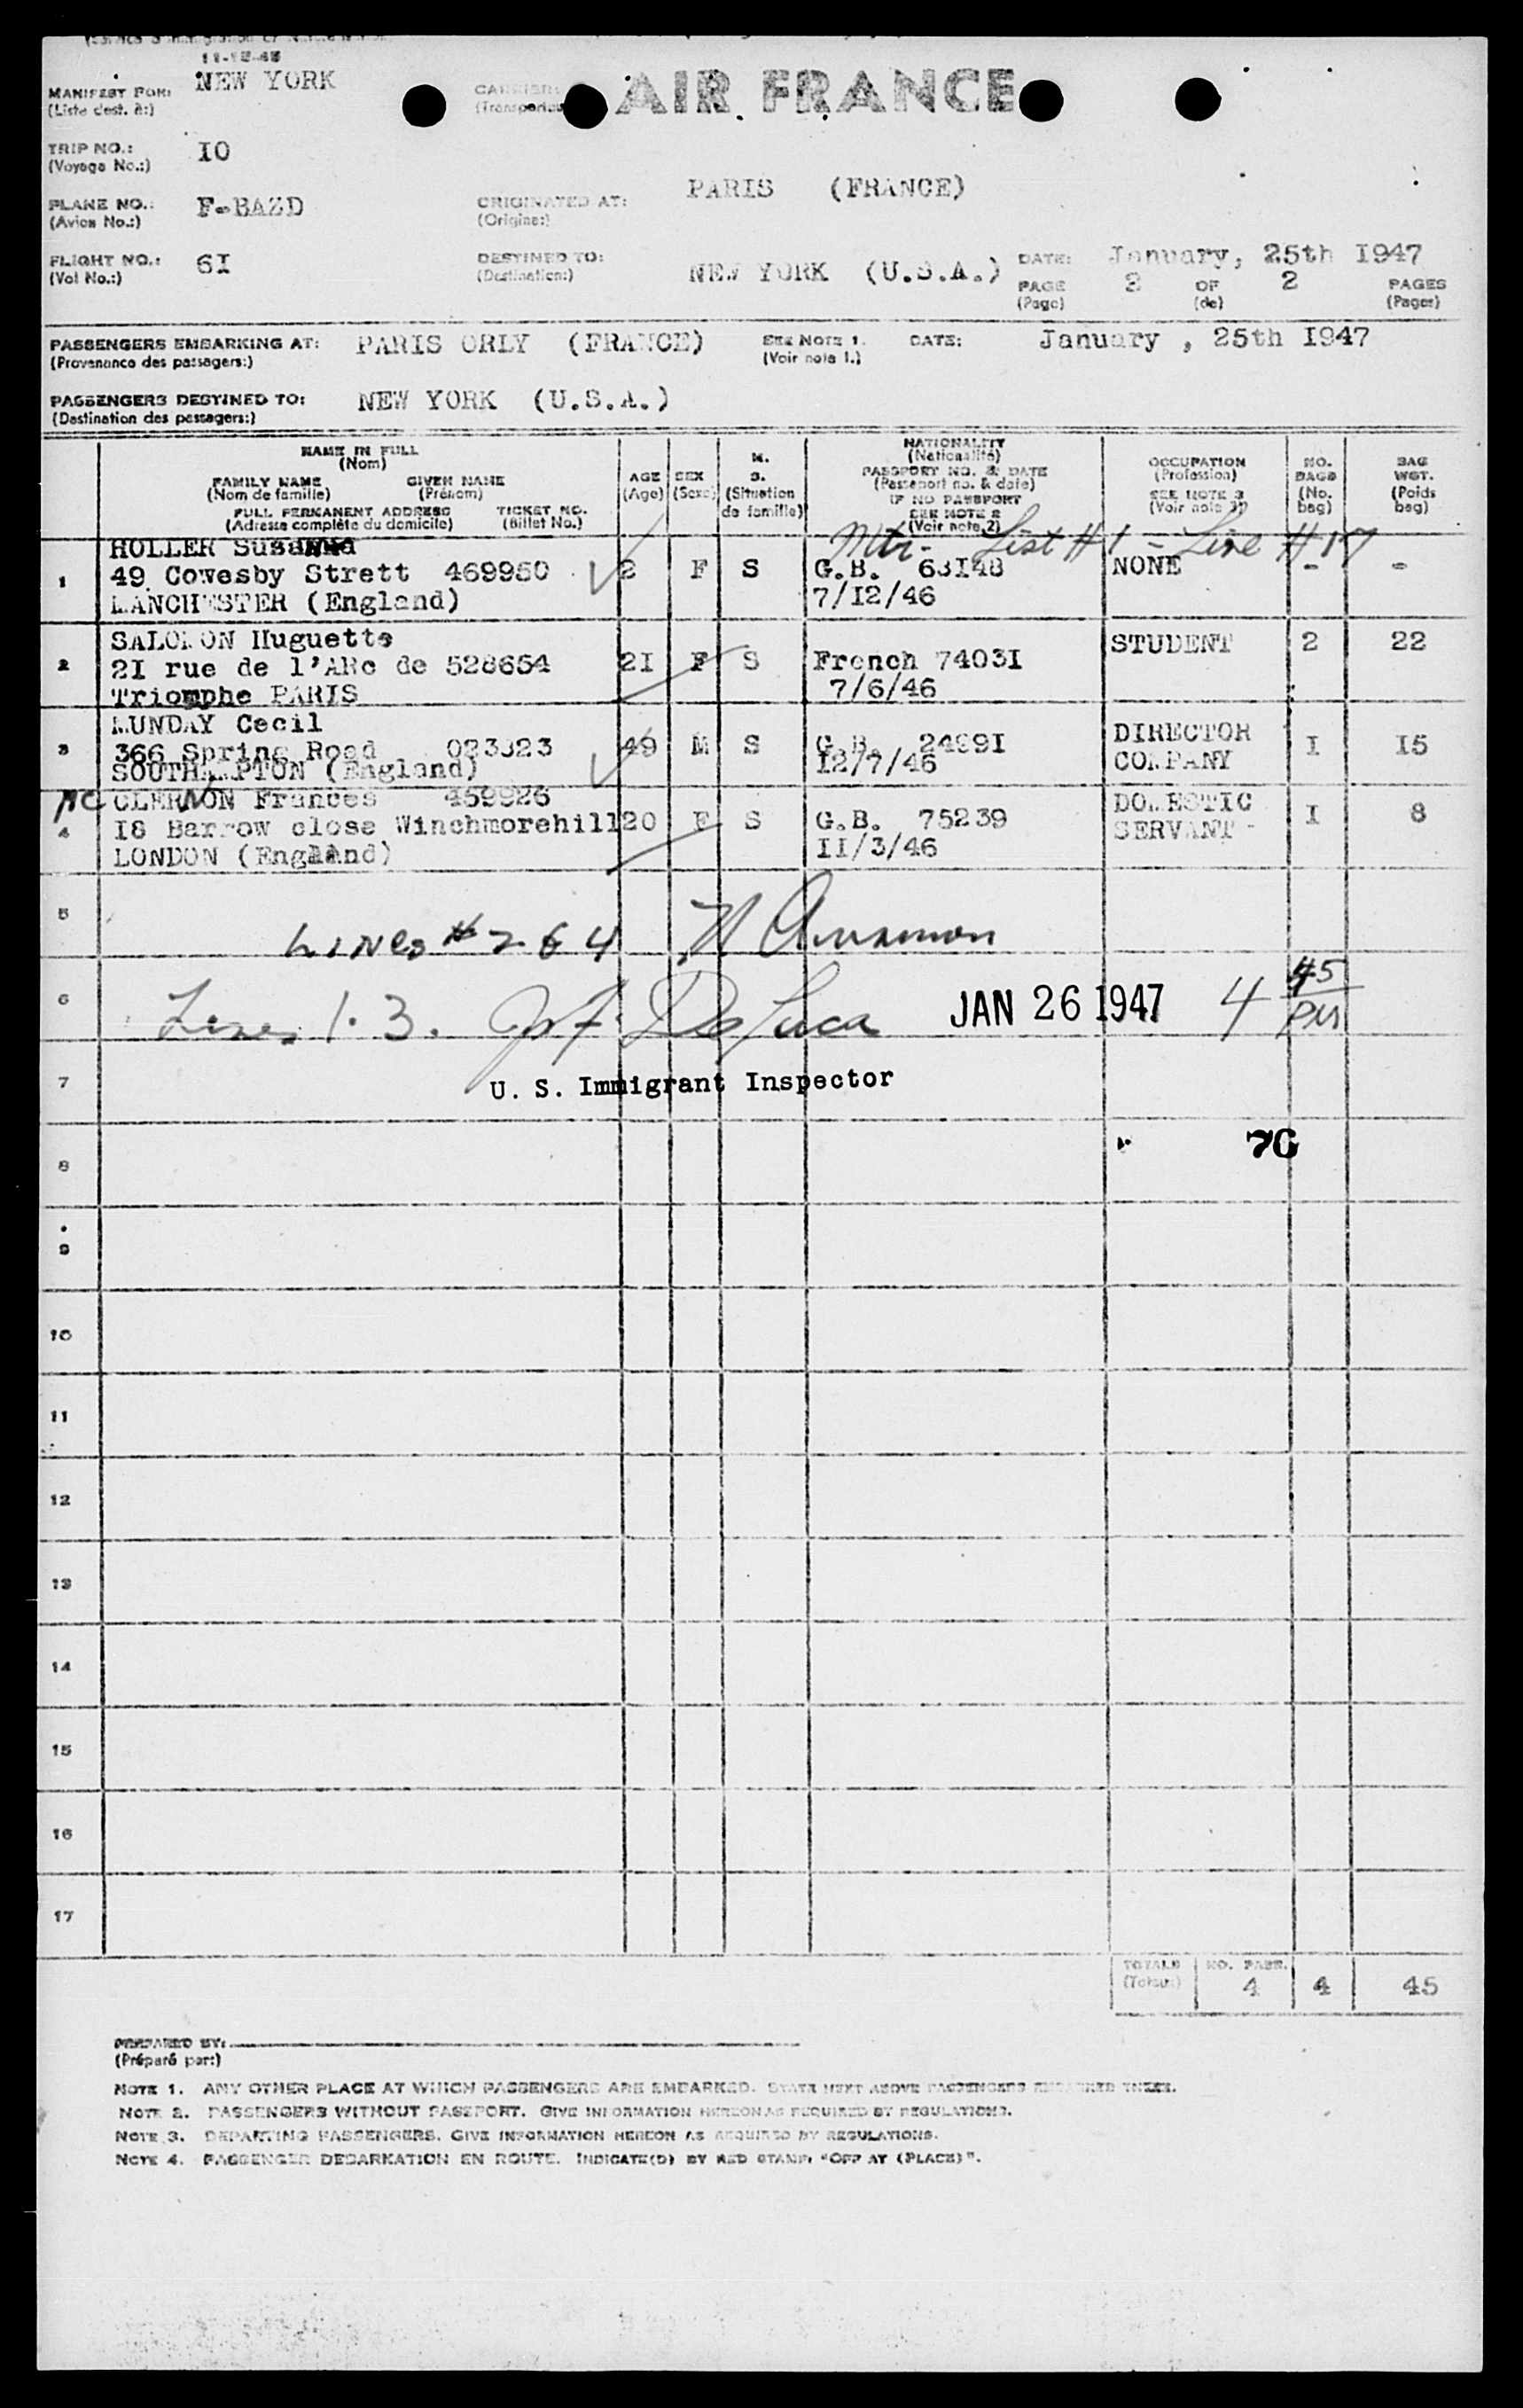 11-12-45
MANIFEST FOR: NEW YORK CARRIER: AIR FRANCE
(Liste dest. à:) (Transporteur
TRIP NO.: IO
(Voyage No.:)
PARIS (FRANCE)
PLANE NO.: F-BAZD ORIGINATED AT:
(Avion No.:) (Origine:)
FLIGHT NO.: 6I DESTINED TO: NEW YORK (U.S.A.) DATE: January, 25th I947
(Vol No.:) (Destination:) PAGE 2 OF 2 PAGES
(Page) (de) (Pages)
PASSENGERS EMBARKING AT: PARIS ORLY (FRANCE) SEE NOTE 1. DATE: January , 25th I947
(Provenance des passagers:) (Voir note 1.)
PASSENGERS DESTINED TO: NEW YORK (U.S.A.)
(Destination des passagers:)
NAME IN FULL
(Nom)
FAMILY NAME GIVEN NAME
(Nom de famille) (Prénom)
FULL PERMANENT ADDRESS TICKET NO.
(Adresse complète du domicile) (Billet No.)
AGE
(Age)
SEX
(Sexe)
M.
S.
(Situation
de famille)
NATIONALITY
(Nationalité)
PASSPORT NO. & DATE
(Passeport no. & date)
IF NO PASSPORT
SEE NOTE 2
(Voir note 2)
OCCUPATION
(Profession)
SEE NOTE 3
(Voir note 3)
NO.
BAGS
(No.
bag)
BAG
WGT.
(Poids
bag)
Mtr- List #1 - Line #17
HOLLER Susanna
1 49 Cowesby Strett 469950 2 F S G.B. 63I48 NONE - -
MANCHESTER (England) 7/I2/46
SALOMON Huguette STUDENT 2 22
2 2I rue de l'ARc de 528654 2I F S French 7403I
Triomphe PARIS 7/6/46
MUNDAY Cecil DIRECTOR
3 366 Spring Road 023323 49 M S G.B. 2489I COMPANY I I5
SOUTHAMPTON (England) I2/7/46
NC CLERNON Frances 459926 DOMESTIC
4 I8 Barrow close Winchmorehill 20 F S G.B. 75239 SERVANT - I 8
LONDON (England) II/3/46
5
Lines # 2 & 4
6 Lines 1.3. De Luca JAN 26 1947 4 45 PM
7 U. S. Immigrant Inspector
8 7G
9
10
11
12
13
14
15
16
17
TOTALS NO. PASS.
(Totaux) 4 4 45
PREPARED BY:
(Préparé par:)
NOTE 1. ANY OTHER PLACE AT WHICH PASSENGERS ARE EMBARKED. STATE NEXT ABOVE PASSENGERS EMBARKED THERE.
NOTE 2. PASSENGERS WITHOUT PASSPORT. GIVE INFORMATION HEREON AS REQUIRED BY REGULATIONS.
NOTE 3. DEPARTING PASSENGERS. GIVE INFORMATION HEREON AS REQUIRED BY REGULATIONS.
NOTE 4. PASSENGER DEBARKATION EN ROUTE. INDICATE(D) BY RED STAMP, "OFF AT (PLACE)".